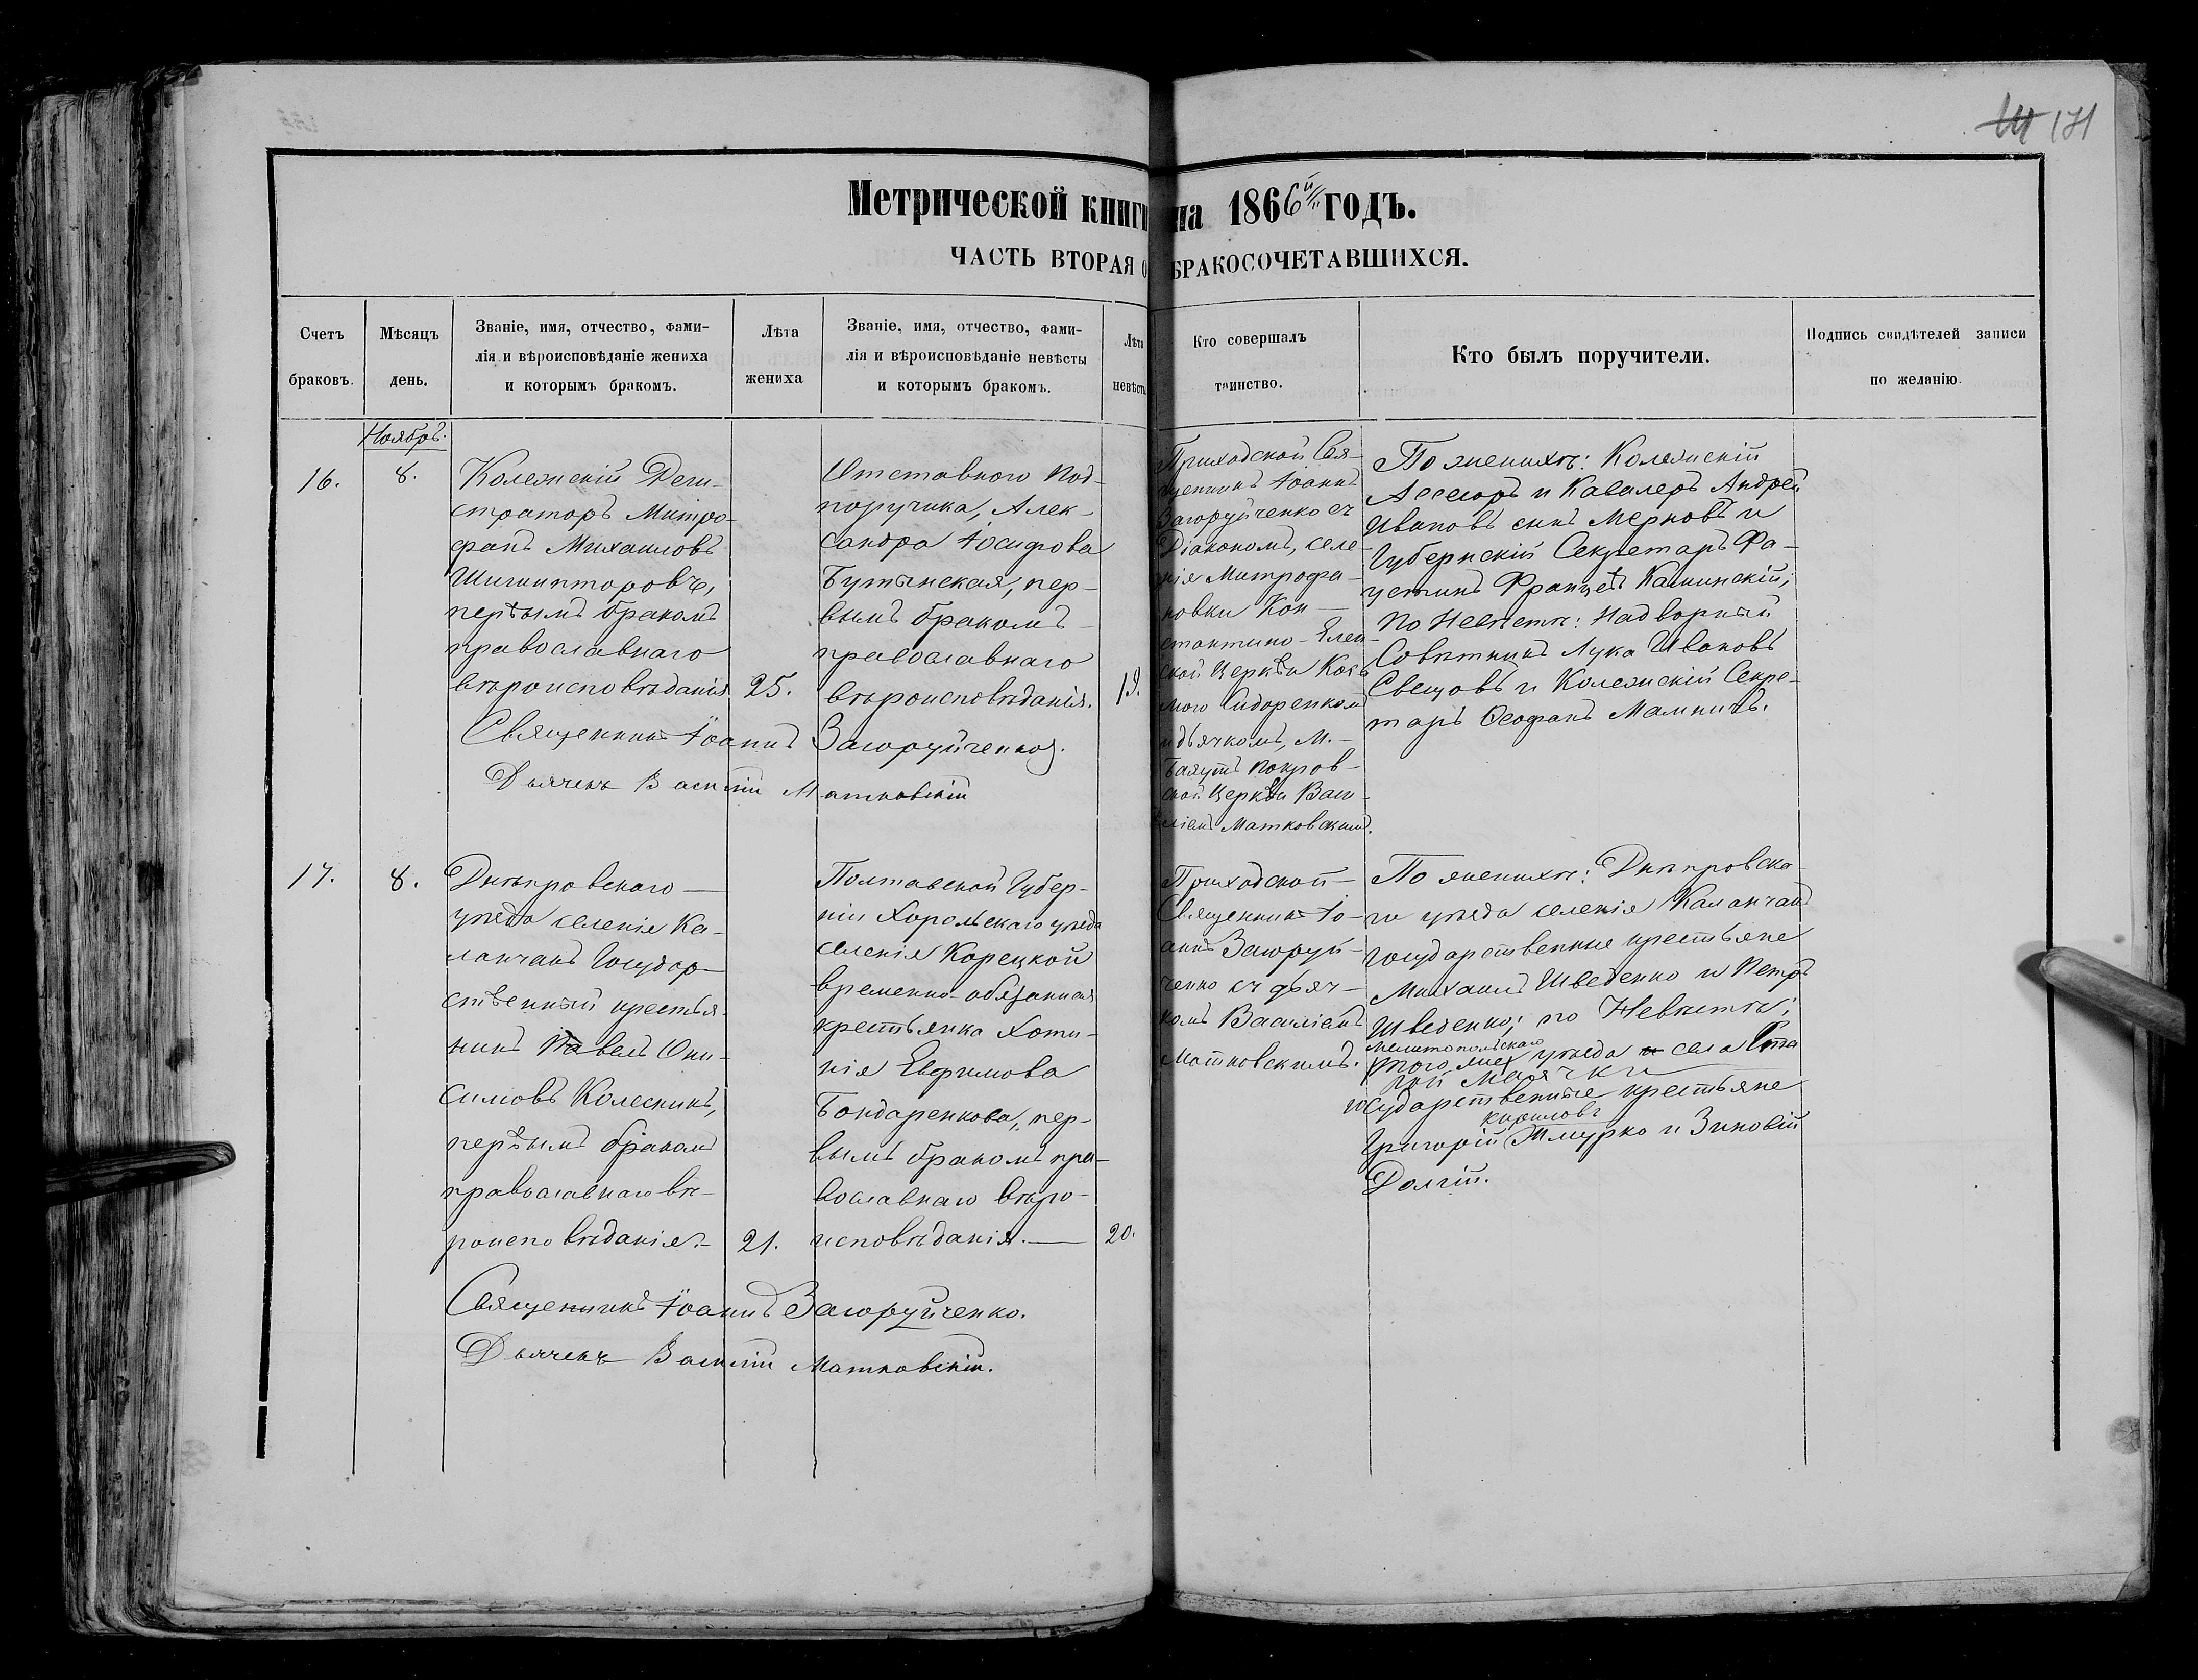 171
Метрической книги на 1866й годъ.
ЧАСТЬ ВТОРАЯ О БРАКОСОЧЕТАВШИХСЯ.
Счетъ браковъ.
Мѣсяцъ день.
Званіе, имя, отчество, фами-
лія и вѣроисповѣданіе жениха
и которымъ бракомъ.
Лѣта
жениха
Званіе, имя, отчество, фами-
лія и вѣроисповѣданіе невѣсты
и которымъ бракомъ.
Лѣта
невѣсты
Кто совершалъ
таинство.
Кто былъ поручители.
Подпись свидѣтелей записи
по желанію.
Ноябрь.
16.
8.
Колежскій Реги-
страторъ Митро-
фанъ Михаиловъ
первымъ бракомъ
православнаго
вѣроисповѣданія
25.
Отставного Под-
поручика, Алек-
сандра Іосифова
Бутынская, пер-
вымъ бракомъ
православнаго
вѣроисповѣданія.
19.
Приходской Свя-
щенникъ Іоаннъ
Загоруйченко съ
Діакономъ, селе-
нія Митрофа-
новки Кон-
стантино-Елен-
ской Церкви Козь-
мою Сидоренком
и дьячкомъ, М.-
Баяутъ Покров-
ской Церкви Васи-
ліемъ Матковскимъ.
По женихѣ: Колежскій
Ассесоръ и Кавалеръ Андрей
Ивановъ сынъ Мерновъ и
Губернскій Секретарь Фа-
устинъ Францевъ Кашинскій;
по Невѣстѣ: Надворный
Совѣтникъ Лука Ивановъ
Свещовъ и Колежскій Секре-
тарь Ѳеофанъ
Священникъ Іоаннъ Загоруйченко.
Дьячекъ Василій Матковскій
17.
8.
Днѣпровскаго
уѣзда селенія Ка-
ланчакъ Государ-
ственный крестья-
нинъ Павелъ Они-
симовъ Колесникъ,
первымъ бракомъ
православнаго вѣ-
роисповѣданія.
21.
Полтавской Губер-
ніи Хорольскаго уѣзда
селенія Корецкой
временно-обязанная
крестьянка Хоти-
нія Евфимова
Бондаренкова, пер-
вымъ бракомъ пра-
вославнаго вѣро-
исповѣданія.
20.
Приходской
Священникъ Іо-
аннъ Загоруй-
ченко съ дьяч-
комъ Василіемъ
Матковскимъ.
По женихѣ: Днѣпровска-
го уѣзда селенія Каланчакъ
государственные крестьяне
Михаилъ Шведенко и Петръ
Шведенко; по Невѣстѣ;
Мелитопольскаго
того же уѣзда и села Ста
рой Маячки
государственные крестьяне
Кириловъ
Григорій Жмурко и Зиновій
Долгій.
Священникъ Іоаннъ Загоруйченко.
Дьячекъ Василій Матковскій.